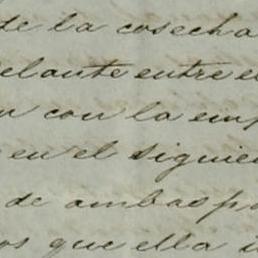 de la cosecha
elante entre e
con la emp
en el siguie
de ambas pa
os que ella i